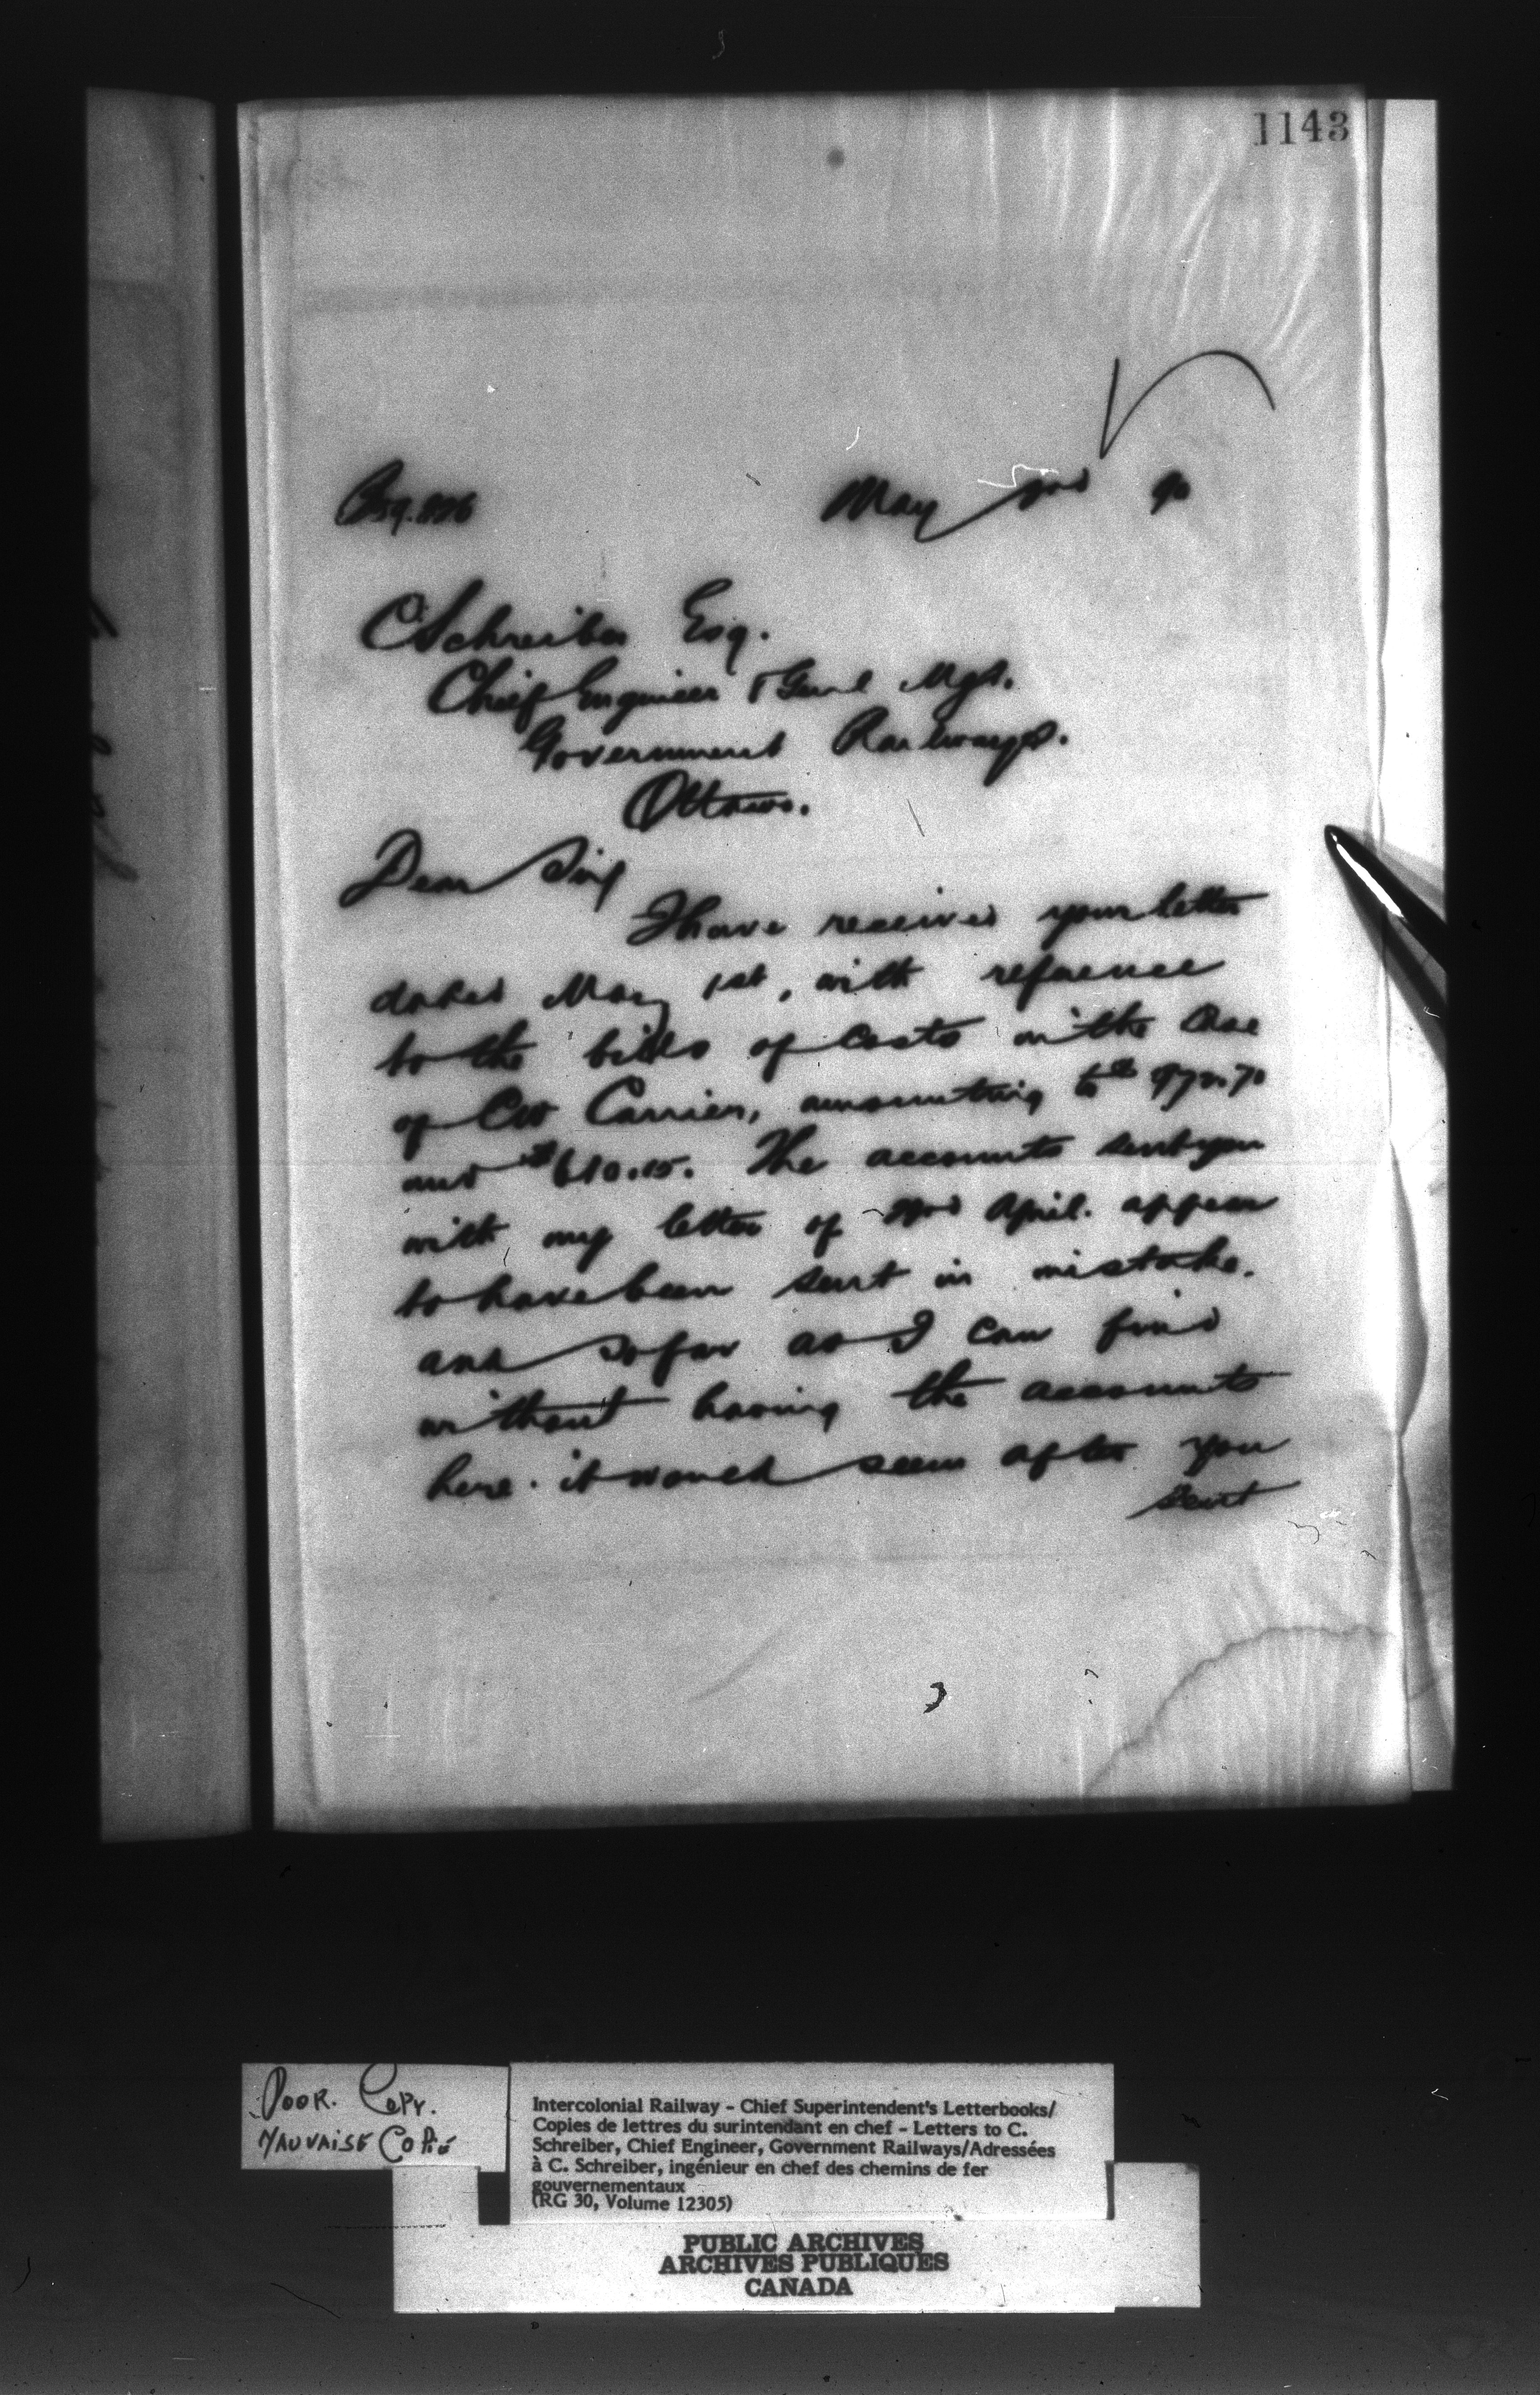 1143
May 2nd 90
C Schreiber Esq.
Chief Engineer & Genl Mgr.
Government Railways.
Ottawa.
Dear Sir
I have received your letter
dated May 1st, with reference
to the bills of costs in the Case
of Carrier, amounting to $972.70
and $610.15. The accounts sent you
with my letter of April. appear
to have been sent in mistake.
and so far as I can find
without having the accounts
here. it would seem after you
sent
POOR. COPY.
MAUVAISE COPIE
Intercolonial Railway - Chief Superintendent's Letterbooks/
Copies de lettres du surintendant en chef - Letters to C.
Schreiber, Chief Engineer, Government Railways/Adressées
à C. Schreiber, ingénieur en chef des chemins de fer
gouvernementaux
(RG 30, Volume 12305)
PUBLIC ARCHIVES
ARCHIVES PUBLIQUES
CANADA